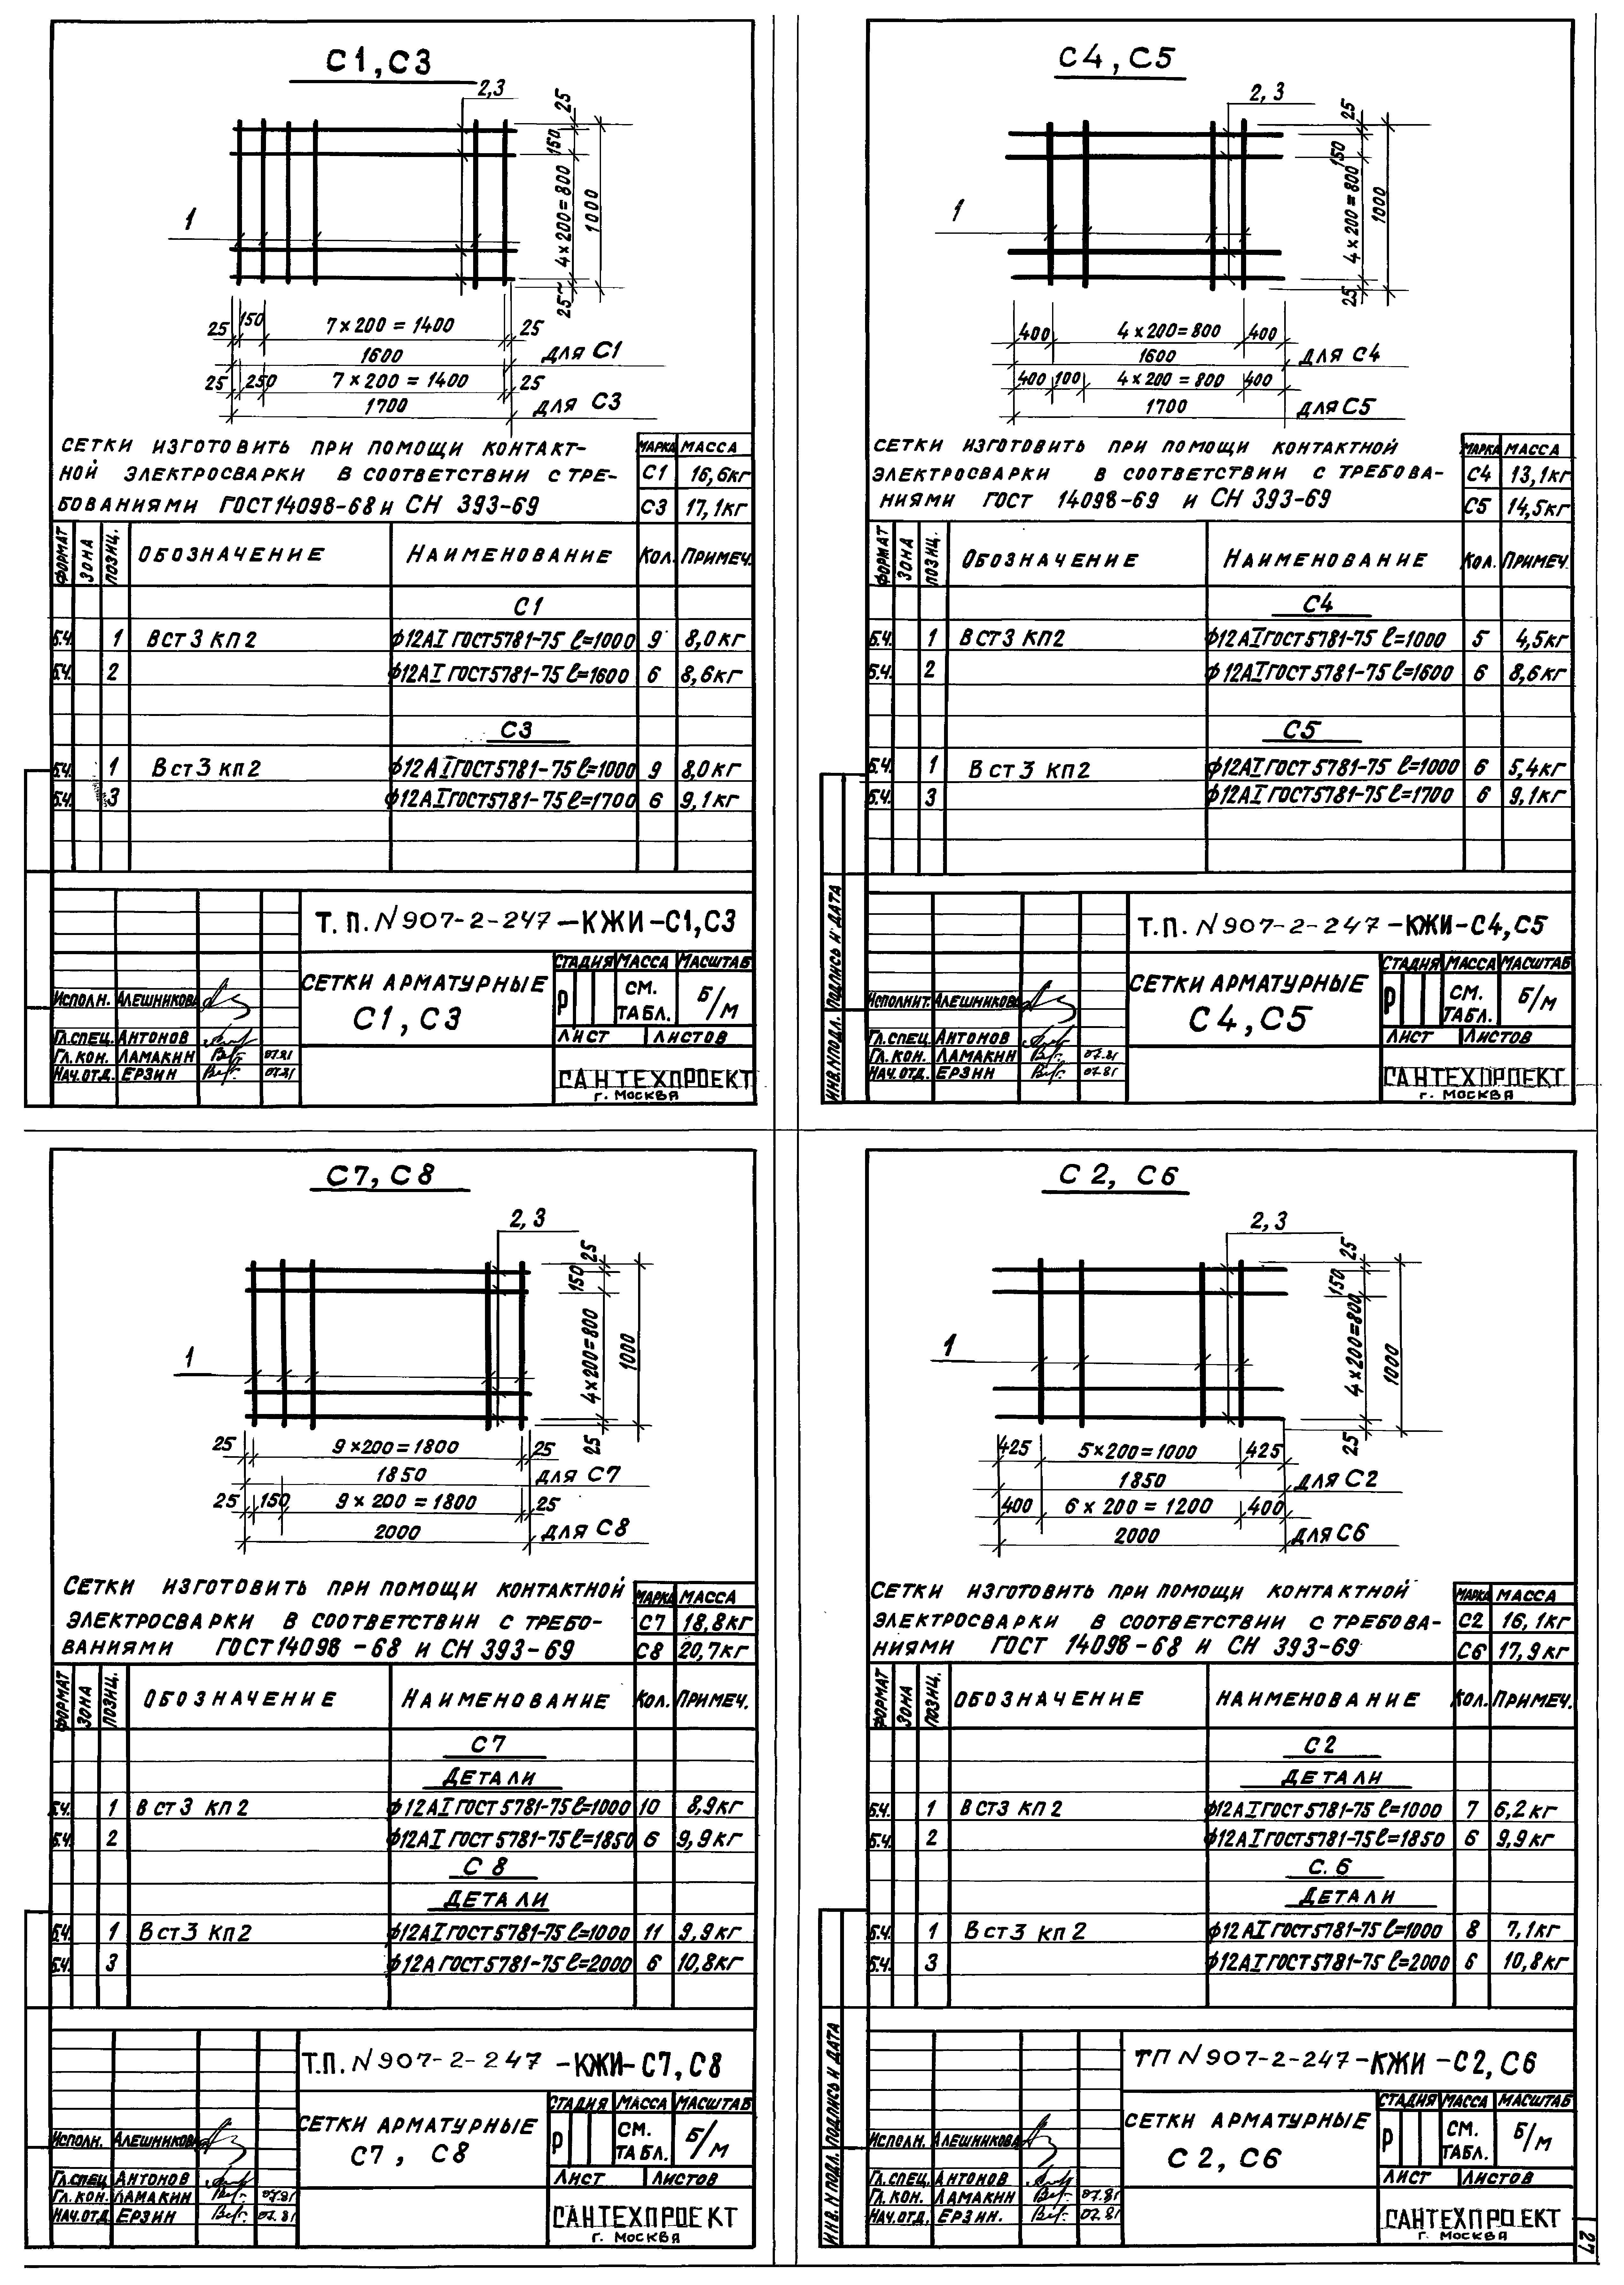 С1, С3
2,3
25
150
4×200=800
1000
25
1
25 150 7×200=1400 25
1600 для С1
25 250 7×200=1400 25
1700 для С3
Сетки изготовить при помощи контакт-
ной электросварки в соответствии с тре-
бованиями ГОСТ 14098-68 и СН 393-69
Марка Масса
С1 16,6кг
С3 17,1кг
Формат Зона Позиц. Обозначение Наименование Кол. Примеч.
С1
Б.Ч. 1 Вст3 кп2 ф12АI ГОСТ5781-75 ℓ=1000 9 8,0кг
Б.Ч. 2 ф12АI ГОСТ5781-75 ℓ=1600 6 8,6кг
С3
Б.Ч. 1 Вст3 кп2 ф12АI ГОСТ5781-75 ℓ=1000 9 8,0кг
Б.Ч. 3 ф12АI ГОСТ5781-75 ℓ=1700 6 9,1кг
Т.П. N907-2-247-КЖИ-С1,С3
Сетки арматурные
С1, С3
Стадия Масса Масштаб
Р см. табл. Б/М
Лист Листов
Исполн. Алешникова
Гл.спец. Антонов
Гл.кон. Ламакин 07.81
Нач.отд. Ерзин 07.81
САНТЕХПРОЕКТ
г. Москва
С4, С5
2, 3
25
150
4×200=800
1000
25
1
400 4×200=800 400
1600 для С4
400 100 4×200=800 400
1700 для С5
Сетки изготовить при помощи контактной
электросварки в соответствии с требова-
ниями ГОСТ 14098-69 и СН 393-69
Марка Масса
С4 13,1кг
С5 14,5кг
Формат Зона Позиц. Обозначение Наименование Кол. Примеч.
С4
Б.Ч. 1 Вст3 кп2 ф12АI ГОСТ5781-75 ℓ=1000 5 4,5кг
Б.Ч. 2 ф12АI ГОСТ5781-75 ℓ=1600 6 8,6кг
С5
Б.Ч. 1 Вст3 кп2 ф12АI ГОСТ5781-75 ℓ=1000 6 5,4кг
Б.Ч. 3 ф12АI ГОСТ5781-75 ℓ=1700 6 9,1кг
Инв.Nподл. Подпись и дата
Т.П. N907-2-247-КЖИ-С4,С5
Сетки арматурные
С4, С5
Стадия Масса Масштаб
Р см. табл. Б/М
Лист Листов
Исполнит. Алешникова
Гл.спец. Антонов
Гл.кон. Ламакин 07.81
Нач.отд. Ерзин 07.81
САНТЕХПРОЕКТ
г. Москва
С7, С8
2, 3
25
150
4×200=800
1000
25
1
25 9×200=1800 25
1850 для С7
25 150 9×200=1800 25
2000 для С8
Сетки изготовить при помощи контактной
электросварки в соответствии с требо-
ваниями ГОСТ 14098-68 и СН 393-69
Марка Масса
С7 18,8кг
С8 20,7кг
Формат Зона Позиц. Обозначение Наименование Кол. Примеч.
С7
Детали
Б.Ч. 1 Вст3 кп2 ф12АI ГОСТ5781-75 ℓ=1000 10 8,9кг
Б.Ч. 2 ф12АI ГОСТ5781-75 ℓ=1850 6 9,9кг
С8
Детали
Б.Ч. 1 Вст3 кп2 ф12АI ГОСТ5781-75 ℓ=1000 11 9,9кг
Б.Ч. 3 ф12А ГОСТ5781-75 ℓ=2000 6 10,8кг
Т.П. N907-2-247-КЖИ-С7,С8
Сетки арматурные
С7, С8
Стадия Масса Масштаб
Р см. табл. Б/М
Лист Листов
Исполн. Алешникова
Гл.спец. Антонов
Гл.кон. Ламакин 07.81
Нач.отд. Ерзин 07.81
САНТЕХПРОЕКТ
г. Москва
С2, С6
2, 3
25
150
4×200=800
1000
25
1
425 5×200=1000 425
1850 для С2
400 6×200=1200 400
2000 для С6
Сетки изготовить при помощи контактной
электросварки в соответствии с требова-
ниями ГОСТ 14098-68 и СН 393-69
Марка Масса
С2 16,1кг
С6 17,9кг
Формат Зона Позиц. Обозначение Наименование Кол. Примеч.
С2
Детали
Б.Ч. 1 Вст3 кп2 ф12АI ГОСТ5781-75 ℓ=1000 7 6,2кг
Б.Ч. 2 ф12АI ГОСТ5781-75 ℓ=1850 6 9,9кг
С.6
Детали
Б.Ч. 1 Вст3 кп2 ф12АI ГОСТ5781-75 ℓ=1000 8 7,1кг
Б.Ч. 3 ф12АI ГОСТ5781-75 ℓ=2000 6 10,8кг
Инв.Nподл. Подпись и дата
ТП N907-2-247-КЖИ-С2,С6
Сетки арматурные
С2, С6
Стадия Масса Масштаб
Р см. табл. Б/М
Лист Листов
Исполн. Алешникова
Гл.спец. Антонов
Гл.кон. Ламакин 07.81
Нач.отд. Ерзин. 07.81
САНТЕХПРОЕКТ
г. Москва
27